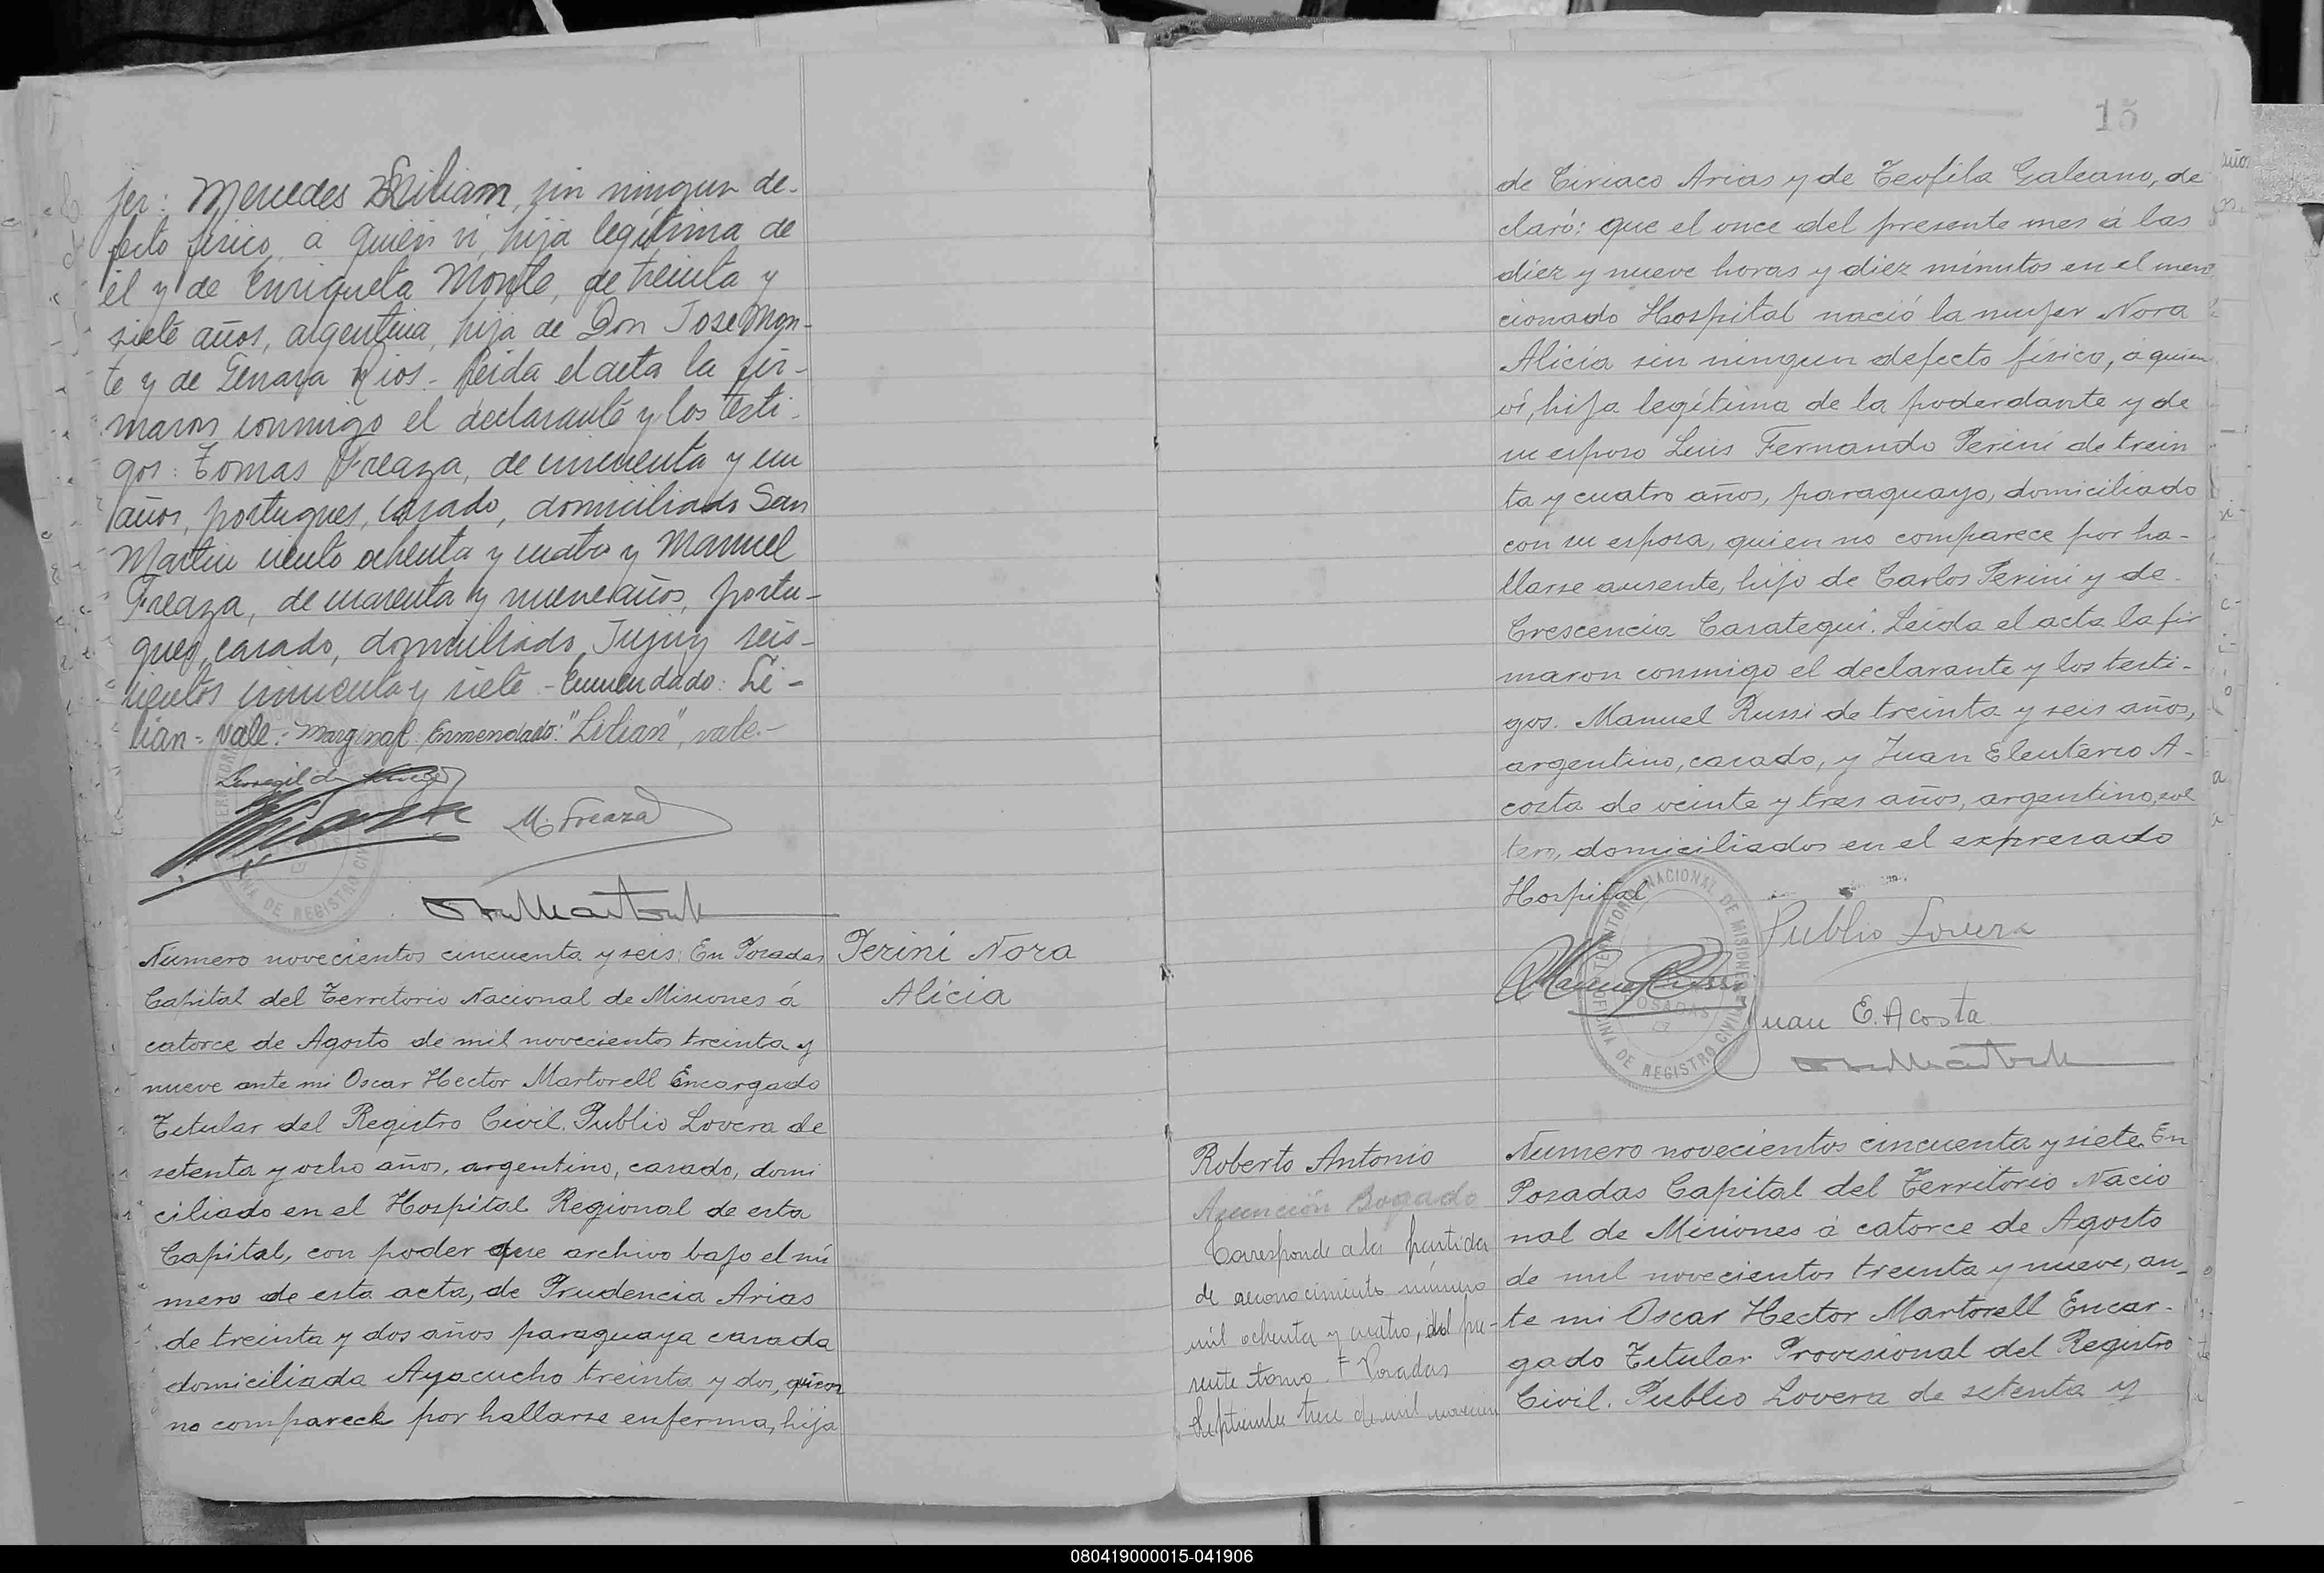 jer: Mercedes Lilian, sin ningun de-
fecto fisico, a quien vi, hija legítima de
él y de Enriqueta Monte, de treinta y
siete años, argentina, hija de Don Jose Mon-
te y de Genara Rios.- Leida el acta la fir-
maron conmigo el declarante y los testi-
gos: Tomas Freaza, de cincuenta y un
años, portugues, casado, domiciliado San
Martin ciento ochenta y cuatro y Manuel
Freaza, de cuarenta y nueve años, portu-
gues, casado, domiciliado Jujuy seis-
cientos cincuenta y siete - Enmendado: Li-
lian = vale.- Marginal: Enmendado: "Lilian", vale.-
M. Freaza
Número novecientos cincuenta y seis: En Posadas
Capital del Territorio Nacional de Misiones á
catorce de Agosto de mil novecientos treinta y
nueve ante mi Oscar Hector Martorell Encargado
Titular del Registro Civil. Publio Lovera de
setenta y ocho años, argentino, casado, domi
ciliado en el Hospital Regional de esta
Capital, con poder que archivo bajo el nú
mero de esta acta, de Prudencia Arias
de treinta y dos años paraguaya casada
domiciliada Ayacucho treinta y dos, quien
no comparece por hallarse enferma, hija
Perini Nora
Alicia
15
de Ciriaco Arias y de Teofila Galeano, de
claró: que el once del presente mes á las
diez y nueve horas y diez minutos en el men
cionado Hospital nació la mujer Nora
Alicia sin ningun defecto físico, á quien
ví, hija legítima de la poderdante y de
su esposo Luis Fernando Perini de trein
ta y cuatro años, paraguayo, domiciliado
con su esposa, quien no comparece por ha-
llarse ausente, hijo de Carlos Perini y de
Crescencia Carategui. Leida el acta la fir
maron conmigo el declarante y los testi-
gos. Manuel Russi de treinta y seis años,
argentino, casado, y Juan Eleuterio A-
costa de veinte y tres años, argentino, sol
tero, domiciliados en el expresado
Hospital
Publio Lovera
Manuel Russi
Juan E. Acosta
TERRITORIO NACIONAL DE MISIONES
POSADAS
OFICINA DE REGISTRO CIVIL
Roberto Antonio
Asunción Bogado
Corresponde a la partida
de reconocimiento número
mil ochenta y cuatro, del pre-
sente tomo.= Posadas
Septiembre trece de mil novecien
Número novecientos cincuenta y siete. En
Posadas Capital del Territorio Nacio
nal de Misiones á catorce de Agosto
de mil novecientos treinta y nueve, an-
te mi Oscar Hector Martorell Encar-
gado Titular Provisional del Registro
Civil. Publio Lovera de setenta y
080419000015-041906